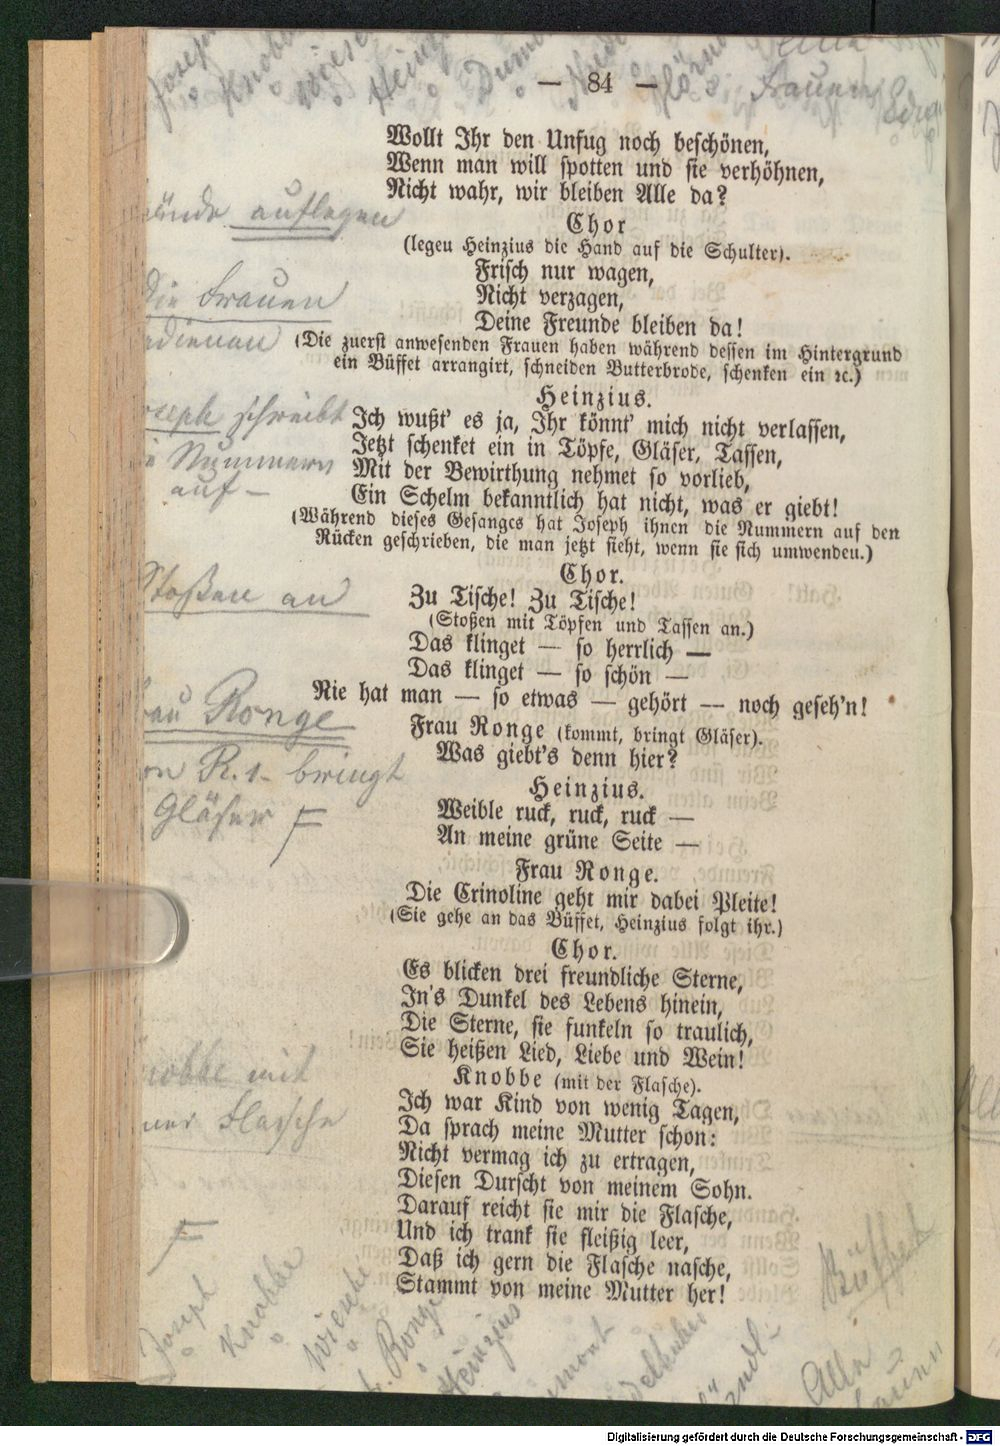 Joseph
Knobbe
Wiese
Heinz
— 84 —
Frauen
Wollt Ihr den Unfug noch beschönen,
Wenn man will spotten und sie verhöhnen,
Nicht wahr, wir bleiben Alle da?
auflegen
Chor
(legeu Heinzius die Hand auf die Schulter).
Frisch nur wagen,
Nicht verzagen,
Deine Freunde bleiben da!
die Frauen
(Die zuerst anwesenden Frauen haben während dessen im Hintergrund
ein Büffet arrangirt, schneiden Butterbrode, schenken ein ꝛc.)
Heinzius.
schreibt
Nummern
auf —
Ich wußt' es ja, Ihr könnt' mich nicht verlassen,
Jetzt schenket ein in Töpfe, Gläser, Tassen,
Mit der Bewirthung nehmet so vorlieb,
Ein Schelm bekanntlich hat nicht, was er giebt!
(Während dieses Gesanges hat Joseph ihnen die Nummern auf den
Rücken geschrieben, die man jetzt sieht, wenn sie sich umwendeu.)
Chor.
Stoßen an
Zu Tische! Zu Tische!
(Stoßen mit Töpfen und Tassen an.)
Das klinget — so herrlich —
Das klinget — so schön —
Nie hat man — so etwas — gehört — noch geseh'n!
Ronge
Frau Ronge (kommt, bringt Gläser).
Was giebt's denn hier?
R. 1. bringt
Gläser F
Heinzius.
Weible ruck, ruck, ruck —
An meine grüne Seite —
Frau Ronge.
Die Crinoline geht mir dabei Pleite!
(Sie gehe an das Büffet, Heinzius folgt ihr.)
Chor.
Es blicken drei freundliche Sterne,
In's Dunkel des Lebens hinein,
Die Sterne, sie funkeln so traulich,
Sie heißen Lied, Liebe und Wein!
mit
Flasche
Knobbe (mit der Flasche).
Ich war Kind von wenig Tagen,
Da sprach meine Mutter schon:
Nicht vermag ich zu ertragen,
Diesen Durscht von meinem Sohn.
Darauf reicht sie mir die Flasche,
Und ich trank sie fleißig leer,
Daß ich gern die Flasche nasche,
Stammt von meine Mutter her!
F
Büffet
Joseph
Knobbe
Ronge
Heinzius
Digitalisierung gefördert durch die Deutsche Forschungsgemeinschaft - DFG